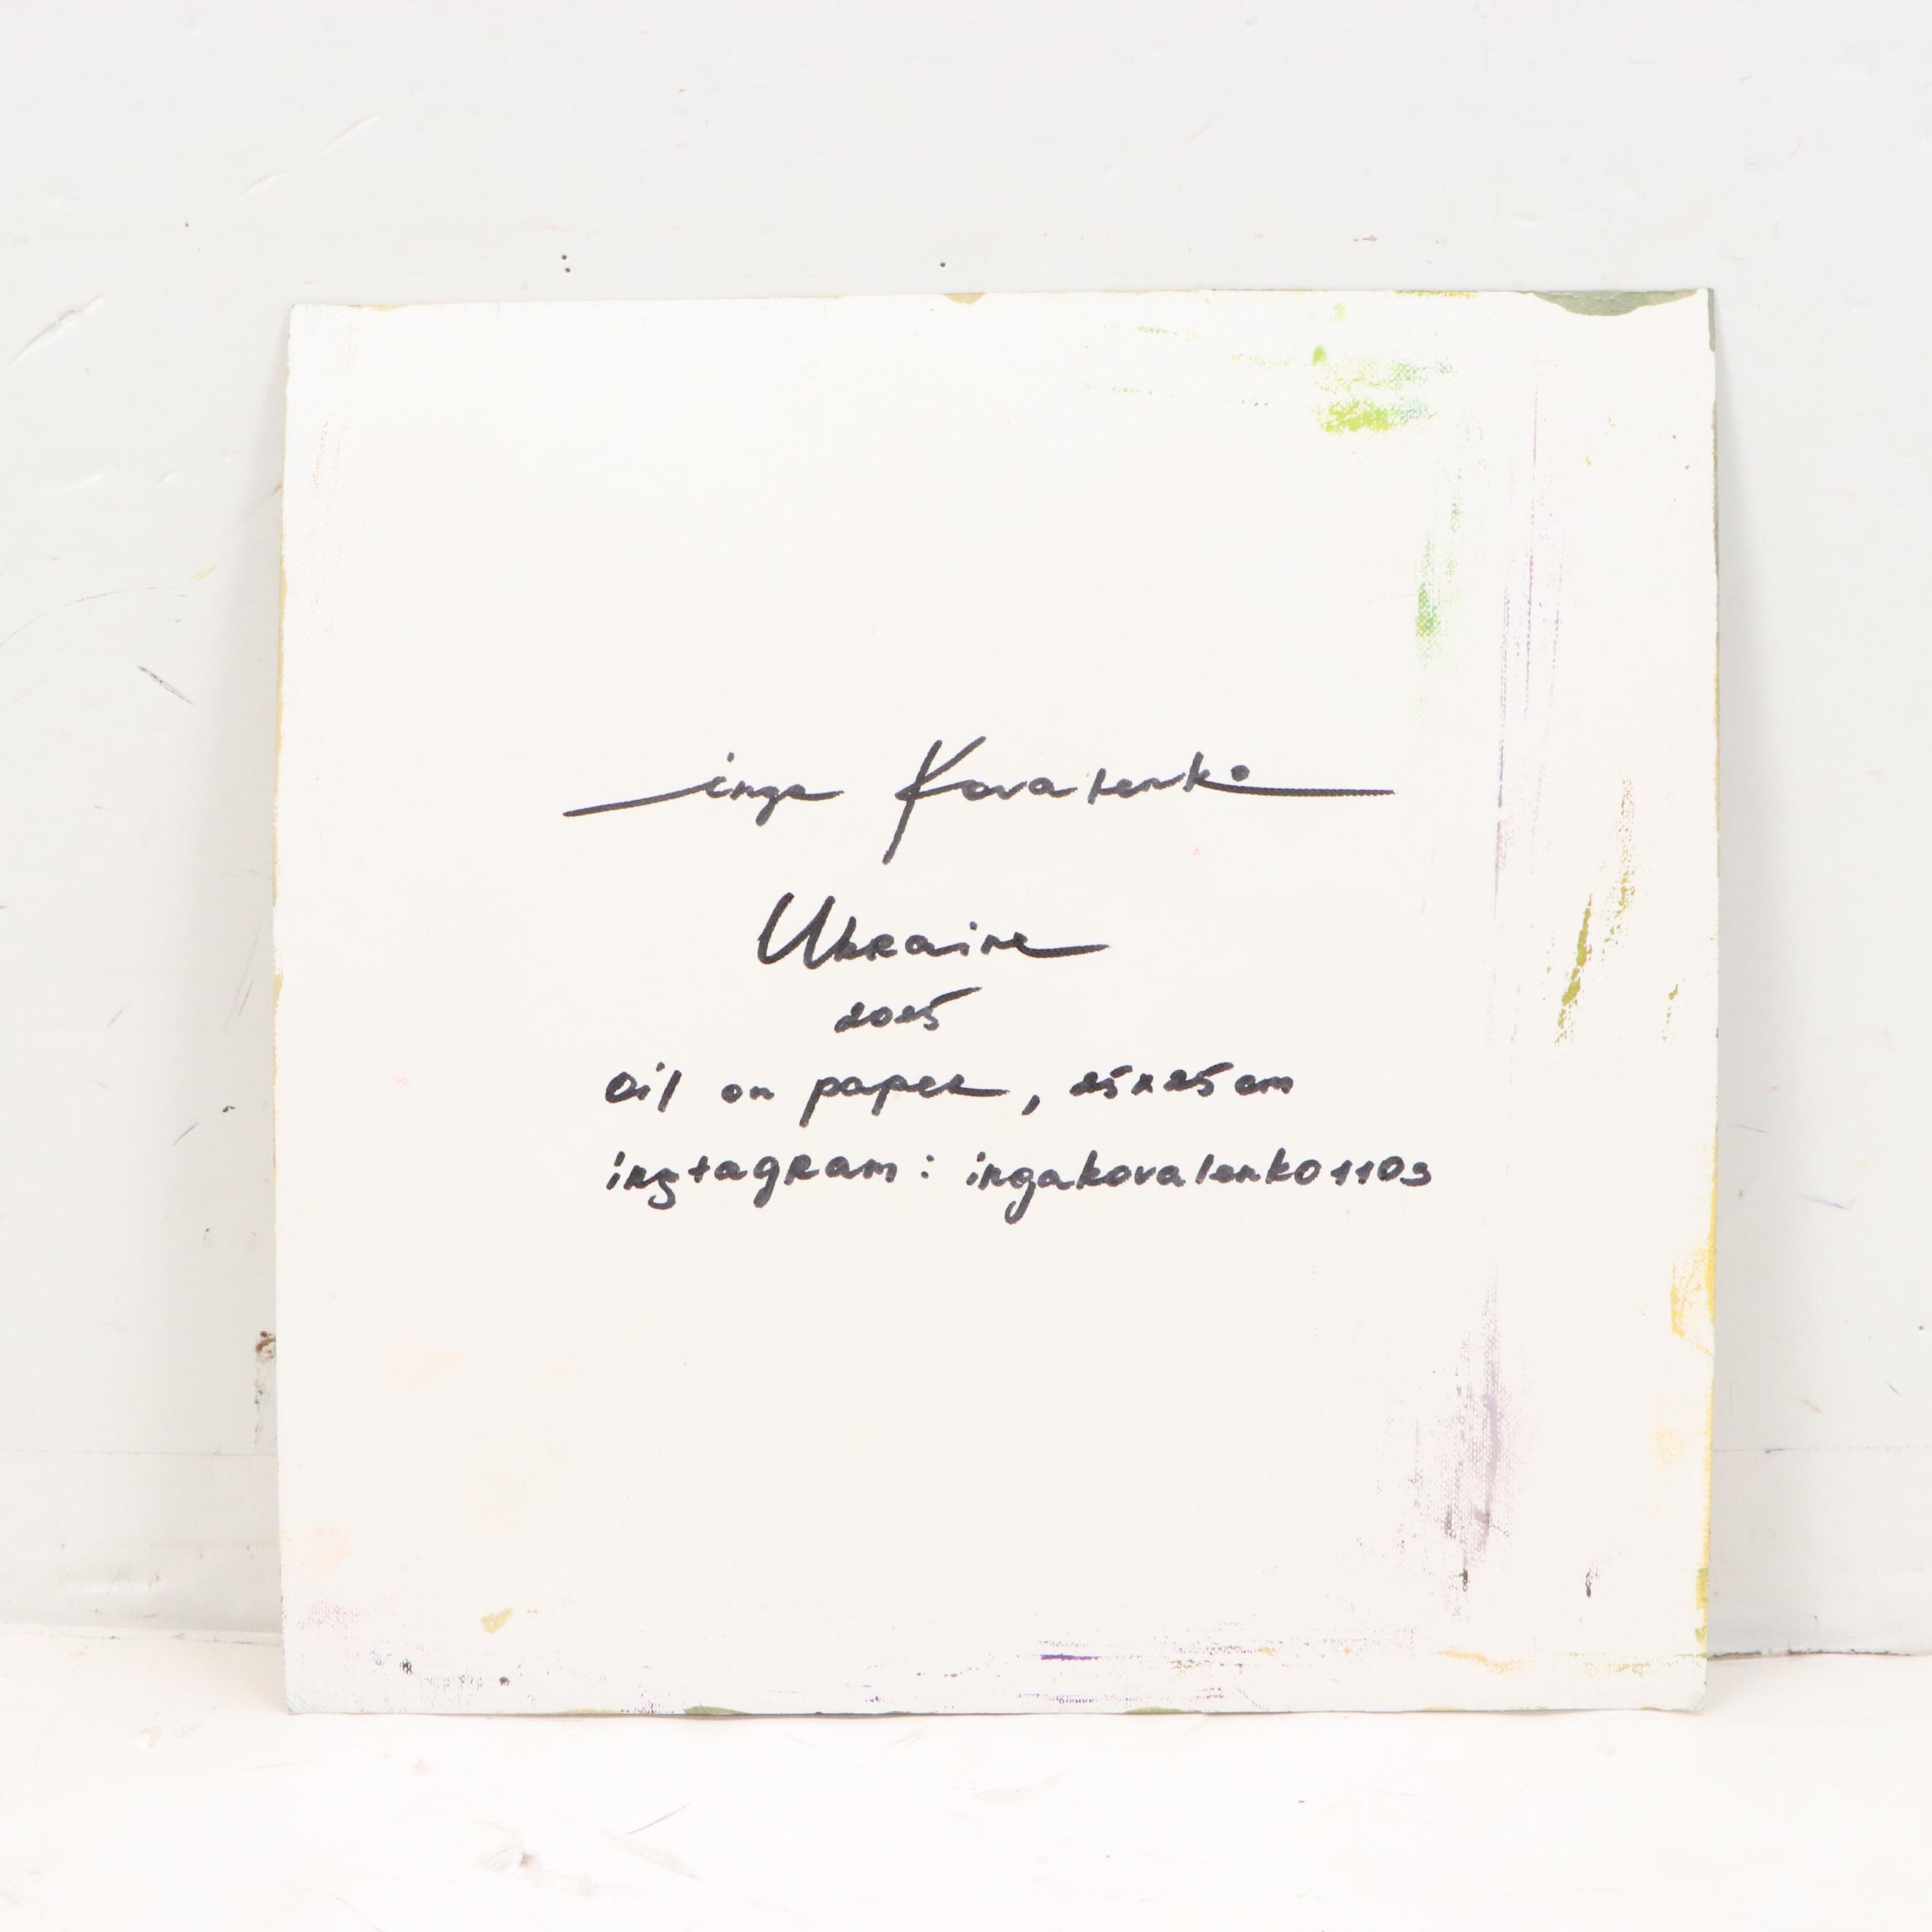 inga Kovalenko
Ukraine
2025
oil on paper, 25x25 cm
instagram: ingakovalenko1103